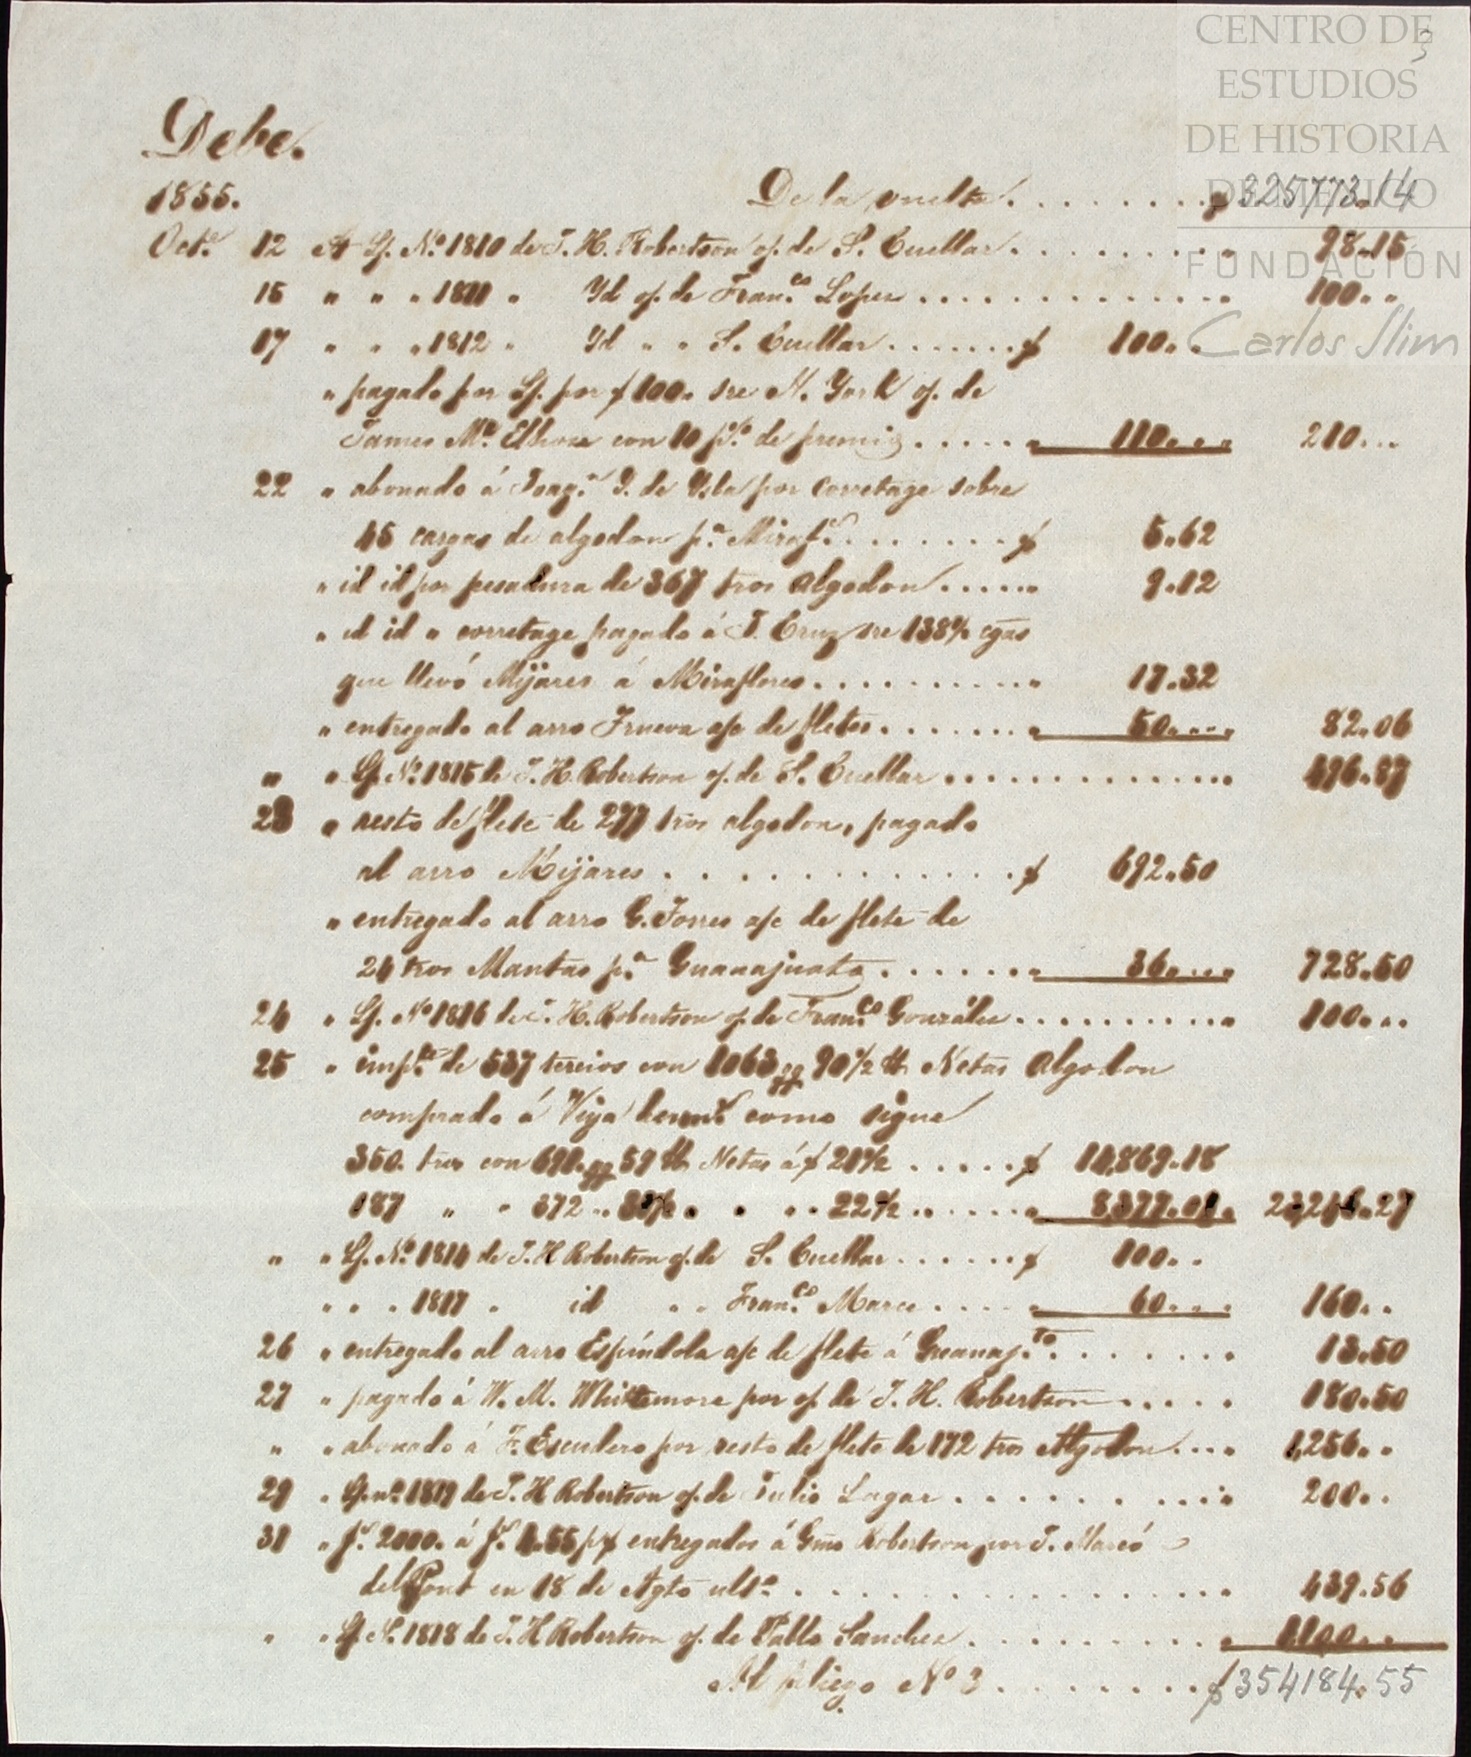 CENTRO DE
ESTUDIOS
DE HISTORIA
DE MÉXICO
FUNDACIÓN
Carlos Slim
3
Debe.
1855. De la vuelta . . . . . . . . $ 325773.14
Oct.e 12 A Lf. N.o 1810 de J. H. Robertson of. de S. Cuellar . . . . . . . . . 98.15
15 " " " 1811 " Yd of. de Fran.co Lopez . . . . . . . . . . . . . 100..
17 " " " 1812 " Yd " " S. Cuellar . . . . . . . $ 100..
" pagado por Lf. por $ 100. sre N. York of. de
James M.c con 10 p%o de premio . . . . . . " 110... 210...
22 " abonado á Joaq.n Y. de Ysla por corretage sobre
45 cargas de algodon p.a Miraf.s . . . . . . . . $ 5.62
" id id por pesadura de 367 tros algodon . . . . . " 9.12
" id id " corretage pagado á J. Cruz sre 138½ cgas
que llevó Mijares á Miraflores . . . . . . . . . . " 17.32
" entregado al arro Trueva a/c de fletes . . . . . . . " 50.... 82.06
" " Lf. N.o 1815 de J. H. Robertson of. de S. Cuellar . . . . . . . . . . . . . . 496.87
23 " resto de flete de 277 tros algodon, pagado
al arro Mijares . . . . . . . . . . . . . $ 692.50
" entregado al arro G. Torres a/c de flete de
24 tros Mantas p.a Guanajuato . . . . . . " 36.... 728.50
24 " Lf. N.o 1816 de J. H. Robertson of. de Fran.co González . . . . . . . . . . 100...
25 " imp.te de 537 tercios con 1063 qq 90½ lb Netas Algodon
comprado á Viya herm.s como sigue
350. tros con 691. qq 59 lb Netas á $ 21½ . . . . . $ 14,869.18
187 " " 372 .. 31½ " " " " 22½ . . . . . . " 8377.09. 23,246.27
" " Lf. N.o 1814 de J. H Robertson of. de S. Cuellar . . . . . . $ 100..
" " " 1817 " id " " Fran.co Marce . . . . " 60... 160..
26 " entregado al arro Espíndola a/c de flete á Guanaj.to . . . . . . . . 13.50
27 " pagado á W. M. Whittemore por of. de J. H. Robertson . . . . . 180.50
" " abonado á F. Escudero por resto de flete de 172 tros Algodon . . . " 1,256..
29 " Lf. n.o 1819 de J. H Robertson of. de Julio Lagar . . . . . . . . . . . 200..
31 " $ 2000. á $ 4.55 p$ entregados á Gmo Robertson por J. Marcó
del Pont en 18 de Agto ult.o . . . . . . . . . . . . . . . . 439.56
" " Lf. N. 1818 de J. H Robertson of. de Pablo Sanchez . . . . . . . . . . " 1100..
Al pliego N.o 3 . . . . . . . . $ 354184.55